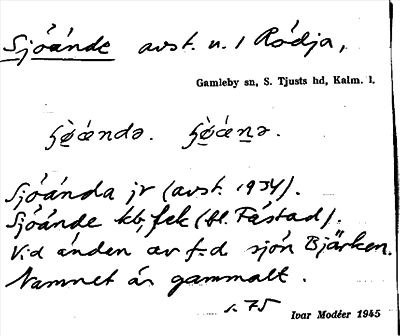 Sjöände avst. u. 1 Rödja,
Gamleby sn, S. Tjusts hd, Kalm. l.
ʃö̀ændə. ʃö̀æṇə.
Sjöända jr (avst. 1934).
Sjöände kb, fek (hl. Fåstad).
Vid änden av f.d. sjön Bjärken.
Namnet är gammalt.
s. 75
Ivar Modéer 1945